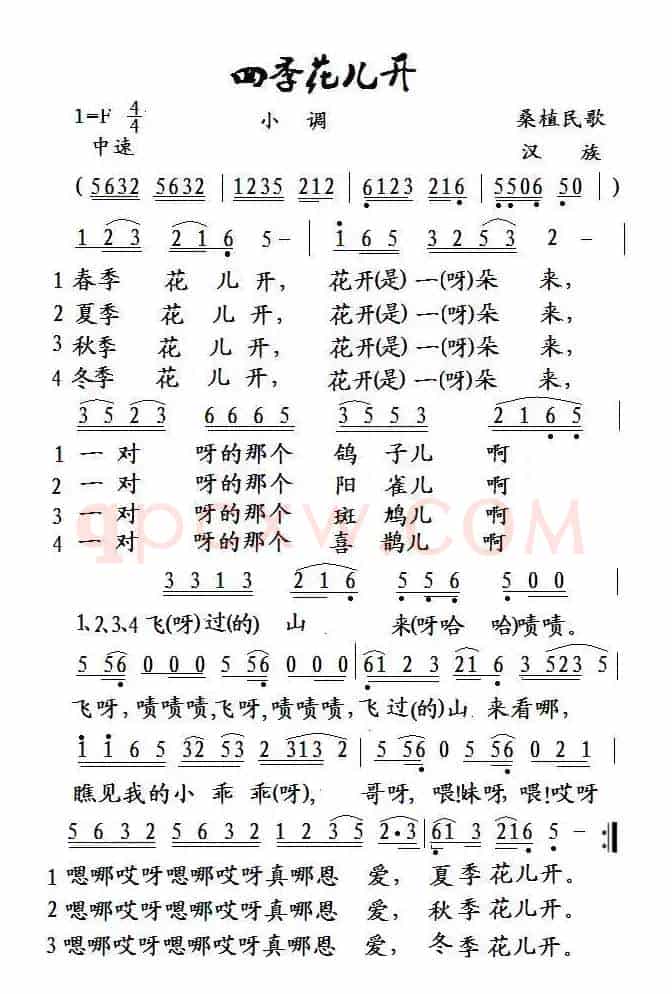 四季花儿开
1=F 4/4 小 调 桑植民歌
中速 汉 族
( 5632 5632 | 1235 212 | 6123 216 | 5506 50 | )
1 23 216 5 - | 1 65 3253 2 - |
1 春季 花 儿 开， 花开(是)一(呀)朵 来，
2 夏季 花 儿 开， 花开(是)一(呀)朵 来，
3 秋季 花 儿 开， 花开(是)一(呀)朵 来，
4 冬季 花 儿 开， 花开(是)一(呀)朵 来，
35 23 6665 3553 2165 |
1 一 对 呀的那个 鸽 子儿 啊
2 一 对 呀的那个 阳 雀儿 啊
3 一 对 呀的那个 斑 鸠儿 啊
4 一 对 呀的那个 喜 鹊儿 啊
qpcxw.COM
3313 216 556 5000 |
1、2、3、4 飞(呀)过(的) 山 来(呀哈 哈)啧啧。
5 56 000 5 56 000 | 61 23 216 3 523 5 |
飞呀，啧啧啧，飞呀，啧啧啧，飞过(的)山 来看哪，
1 165 32 53 23 2 313 2 | 5 56 0 5 56 021 |
瞧见我的小 乖 乖(呀)， 哥呀，喂!妹呀，喂!哎呀
5632 5632 1235 2·3 | 61 3 216 5 - :||
1 嗯哪哎呀嗯哪哎呀真哪恩 爱， 夏季花儿开。
2 嗯哪哎呀嗯哪哎呀真哪恩 爱， 秋季花儿开。
3 嗯哪哎呀嗯哪哎呀真哪恩 爱， 冬季花儿开。